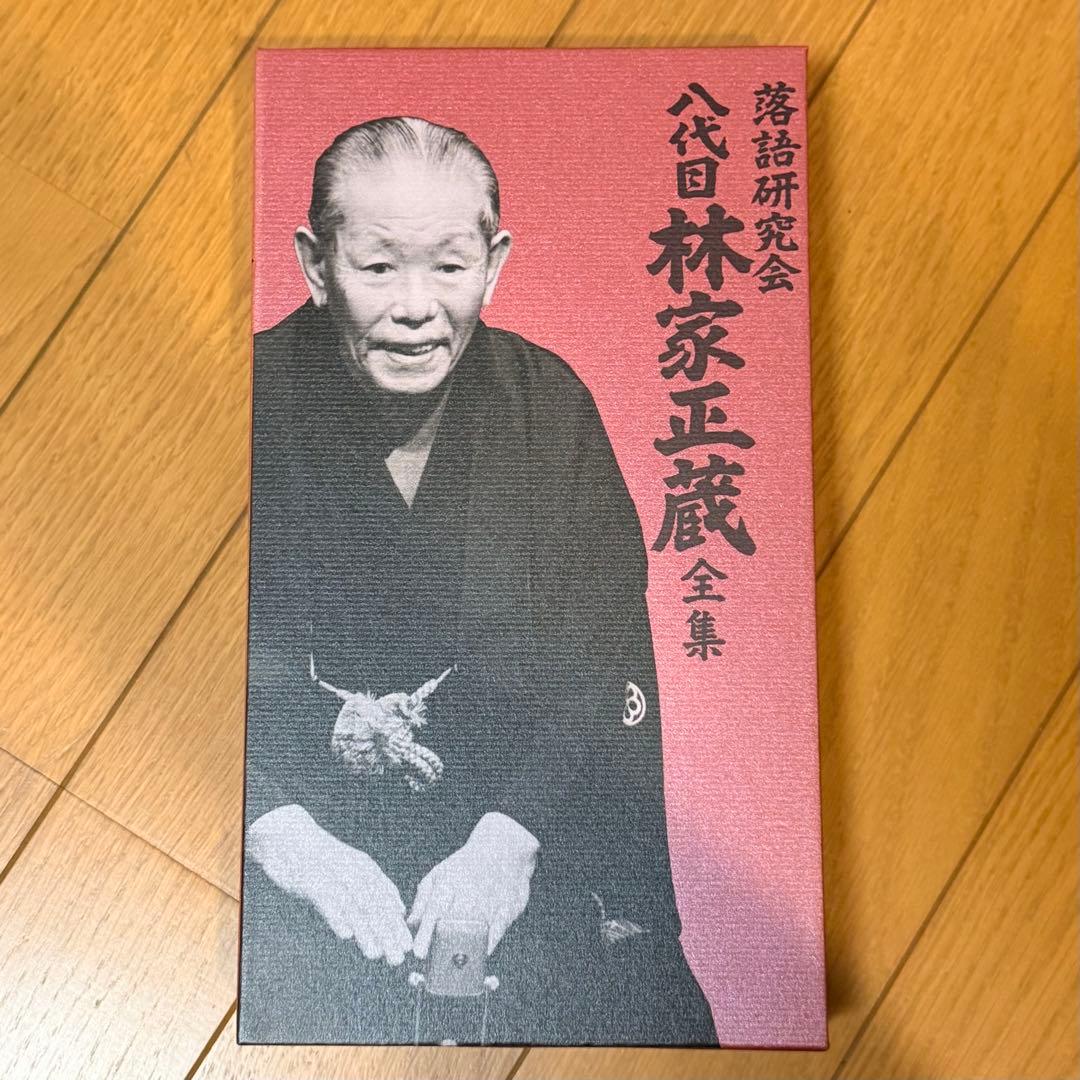 落語研究会
八代目 林家正蔵 全集